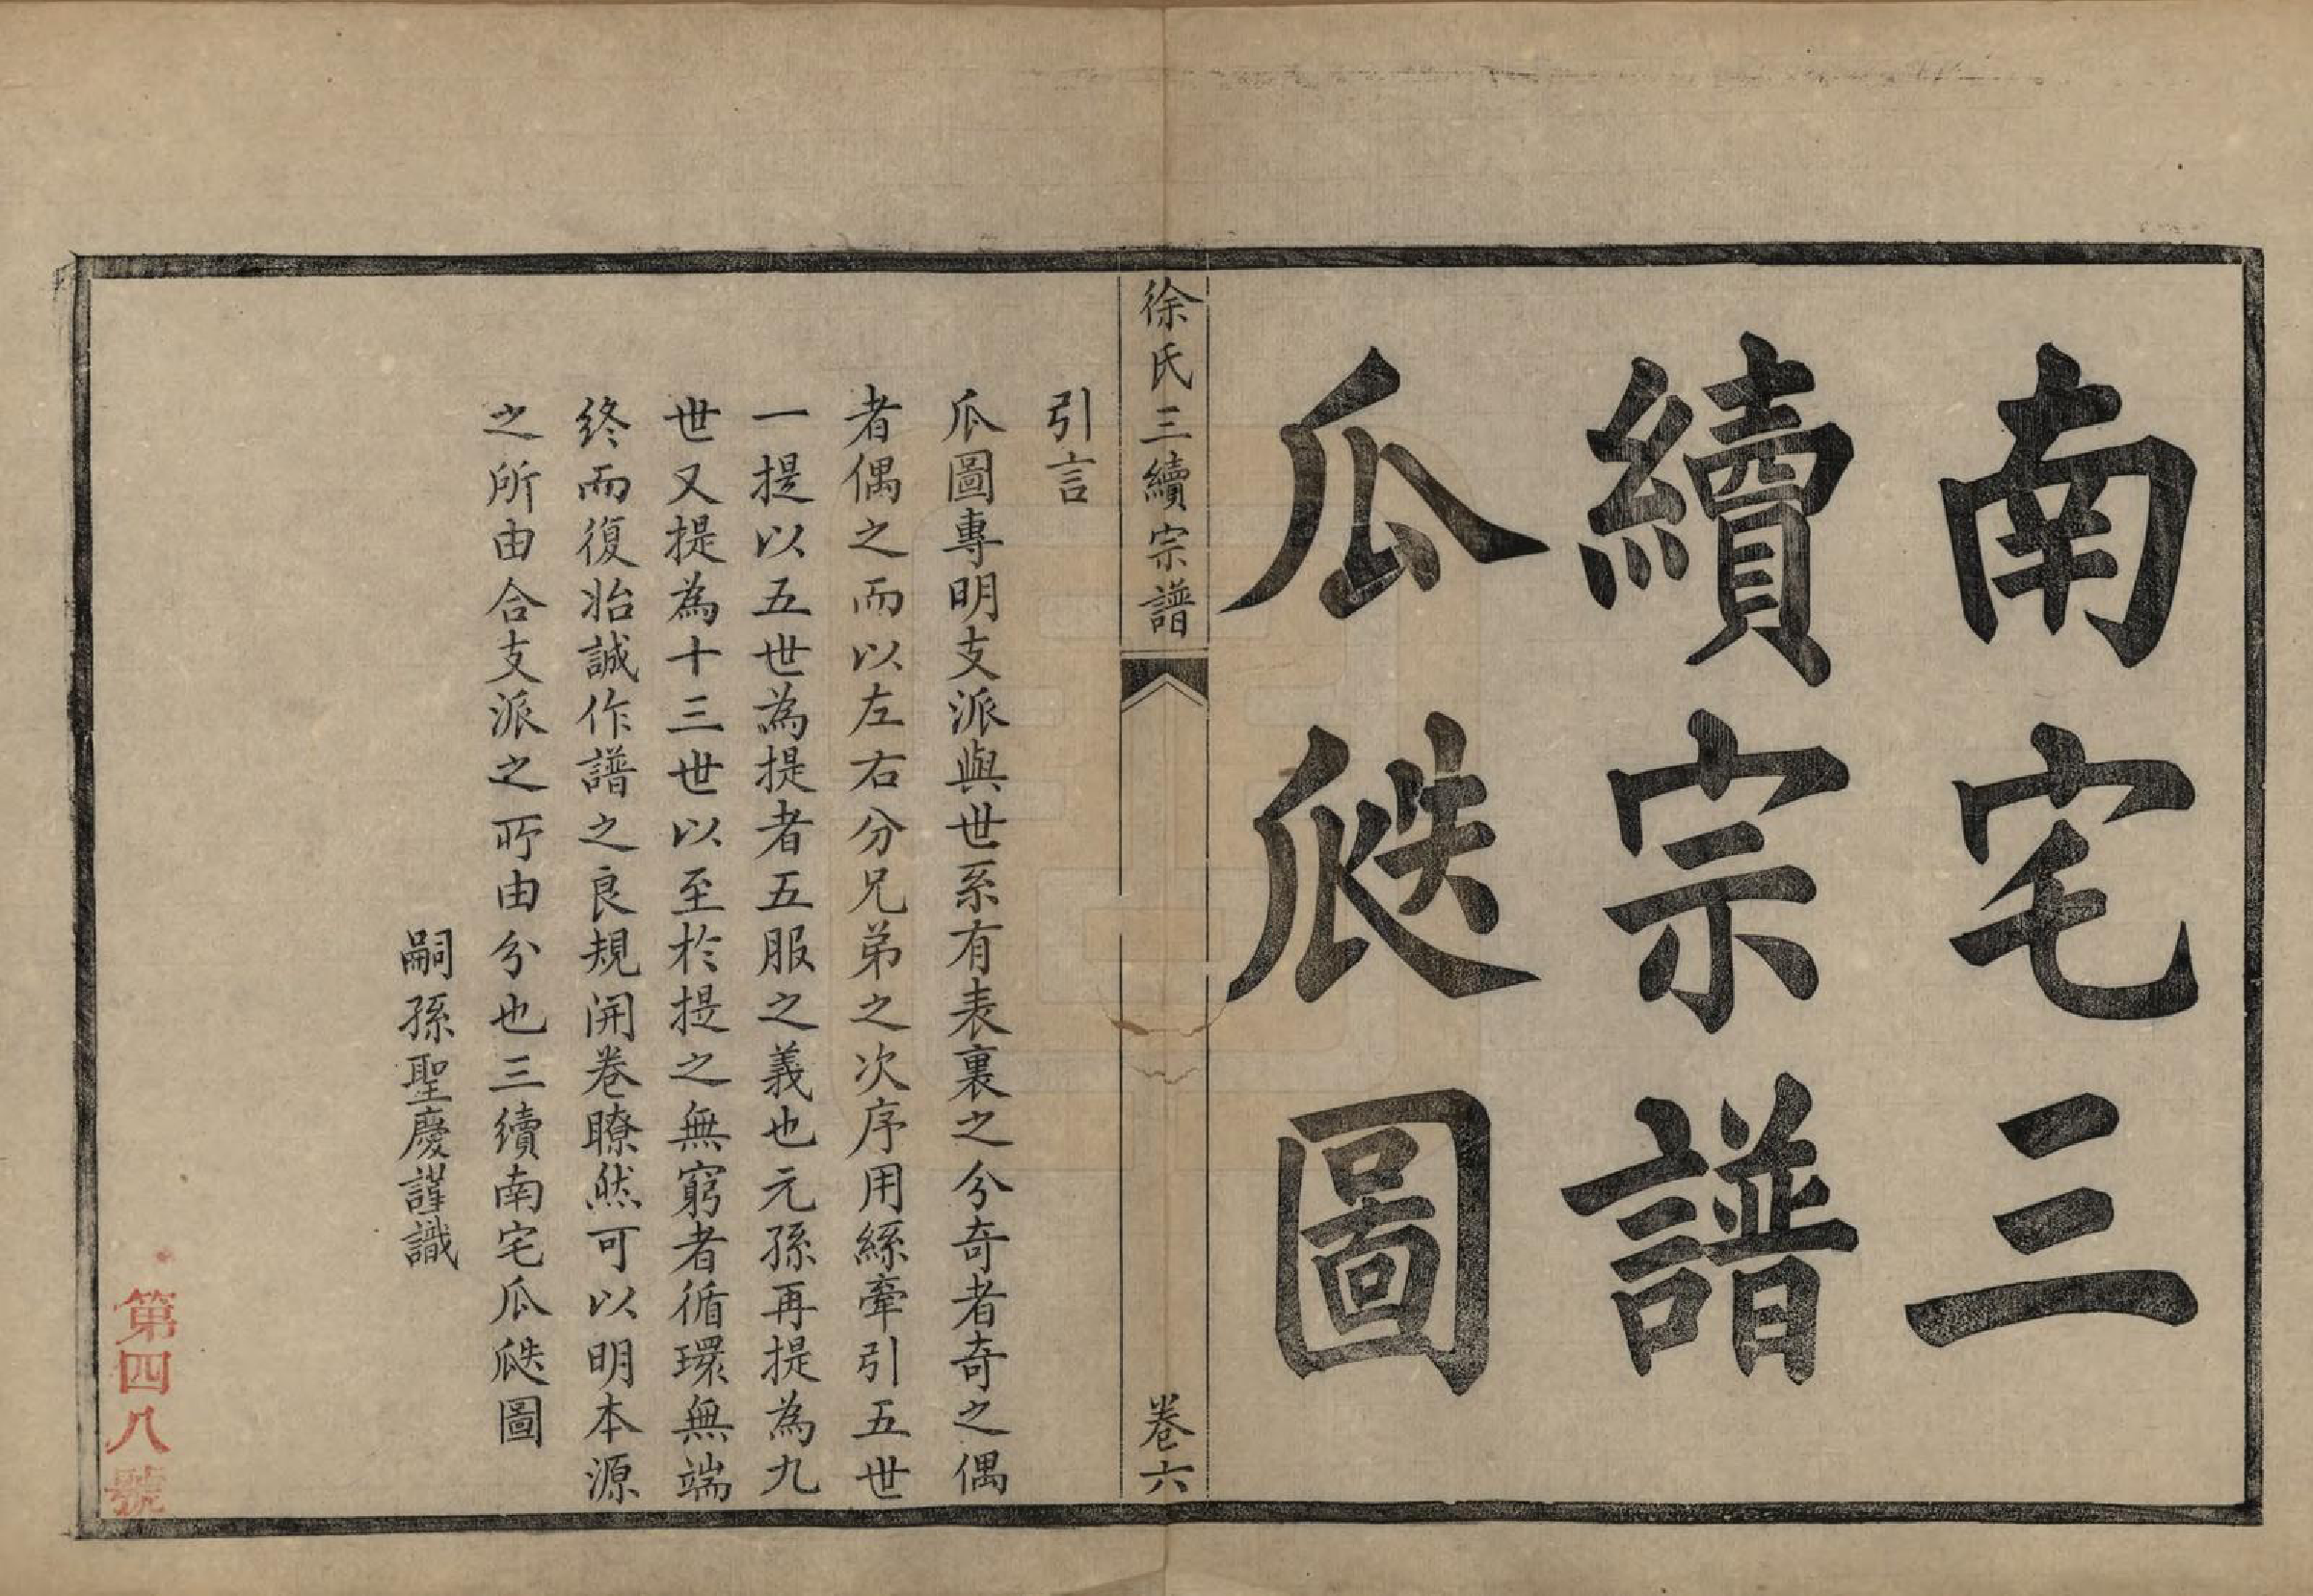 南宅三
續宗譜
瓜瓞圖
徐氏三續宗譜
卷六
引言
瓜圖專明支派與世系有表裏之分奇者奇之偶
者偶之而以左右分兄弟之次序用絲牽引五世
一提以五世為提者五服之義也元孫再提為九
世又提為十三世以至於提之無窮者循環無端
終而復始誠作譜之良規開卷瞭然可以明本源
之所由合支派之所由分也三續南宅瓜瓞圖
嗣孫聖慶謹識
第四八號